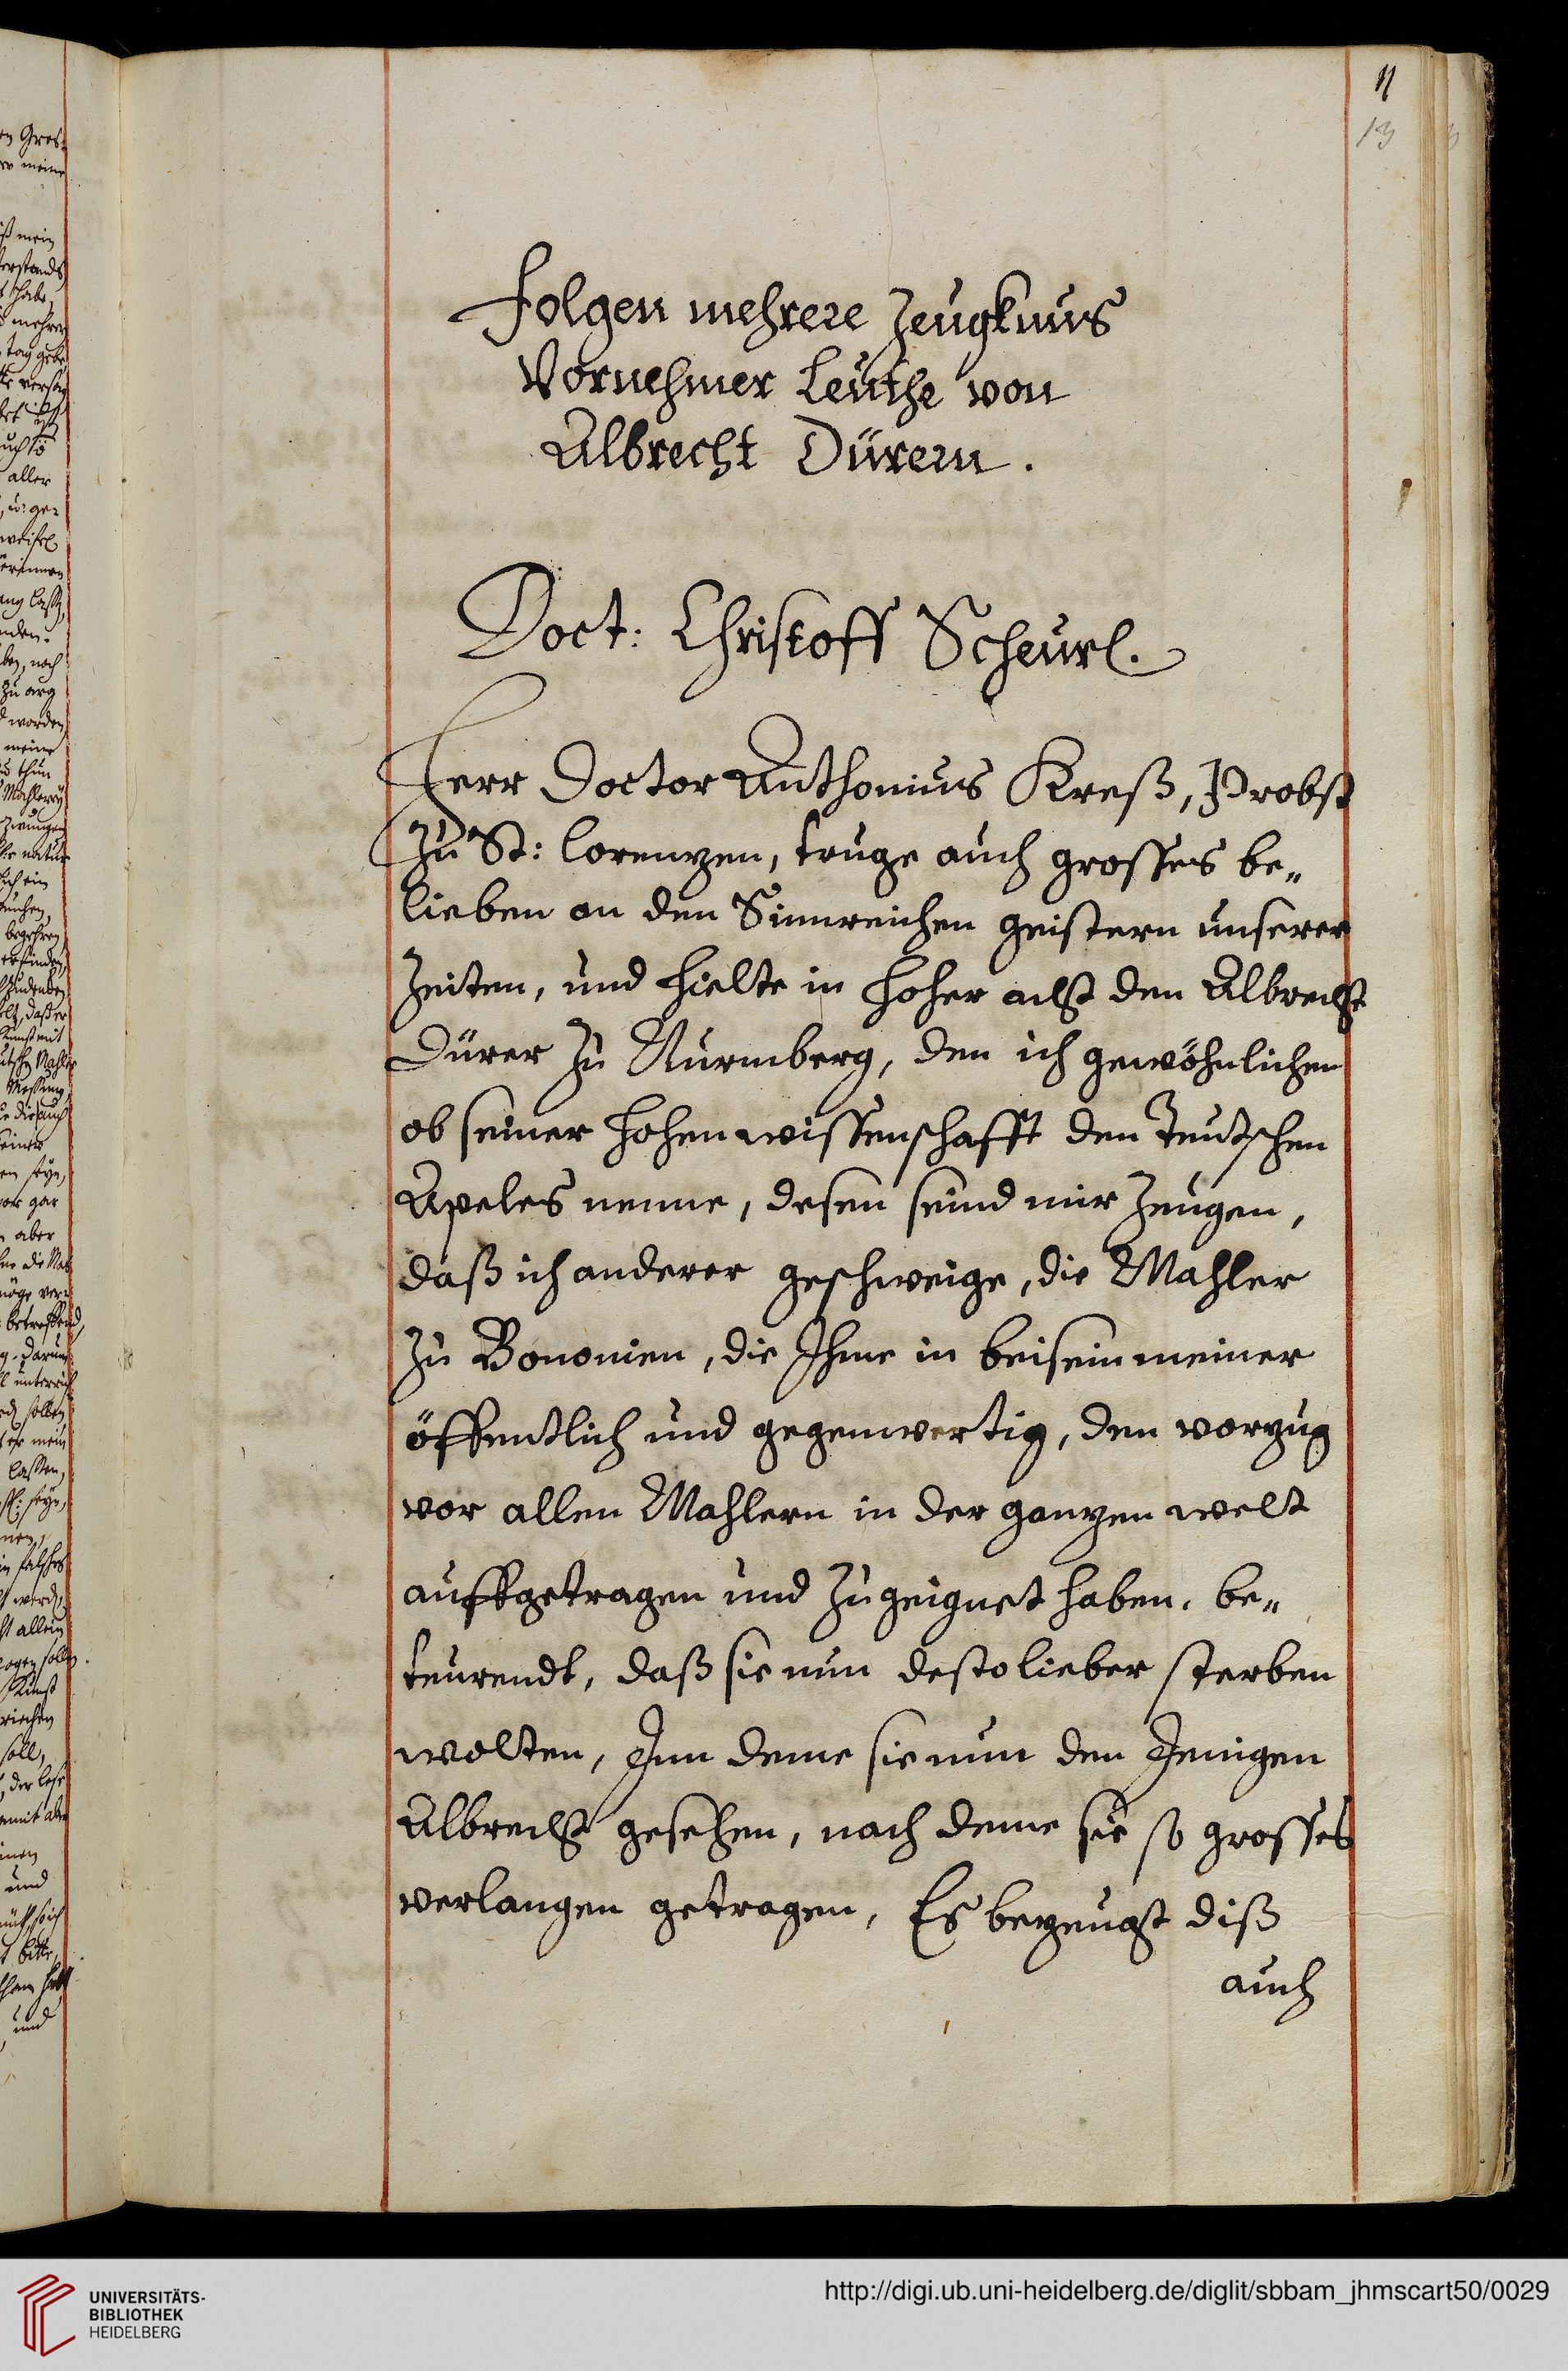 11
13
Folgen mehrere Zeugknus
Vornehmer Leuthe von
Albrecht Dürern.
Doct: Christoff Scheurl.
Herr Doctor Anthonius Kreß, Probst
Zu St: Lorenzen, truge auch grosses be„
lieben an den Sinnreichen geistern unserer
Zeiten, und hielte in hoher acht den Albrecht
Dürer Zu Nurmberg, den ich gewöhnlichen
ob seiner hohen wissenschafft den Teutschen
Apeles nenne, desen seind mir Zeugen,
daß ich anderer geschweige, die Mahler
Zu Bononien, die Ihme in beisein meiner
öffentlich und gegenwertig, den vorzug
vor allen Mahlern in der ganzen welt
auffgetragen und Zugeignet haben, be„
teurendt, daß sie nun desto lieber sterben
wolten, Inn deme sie nun den Jenigen
Albrecht gesehen, nach deme sie so grosses
verlangen getragen, Es bezeugt diß
auch
UNIVERSITÄTS-
BIBLIOTHEK
HEIDELBERG
http://digi.ub.uni-heidelberg.de/diglit/sbbam_jhmscart50/0029